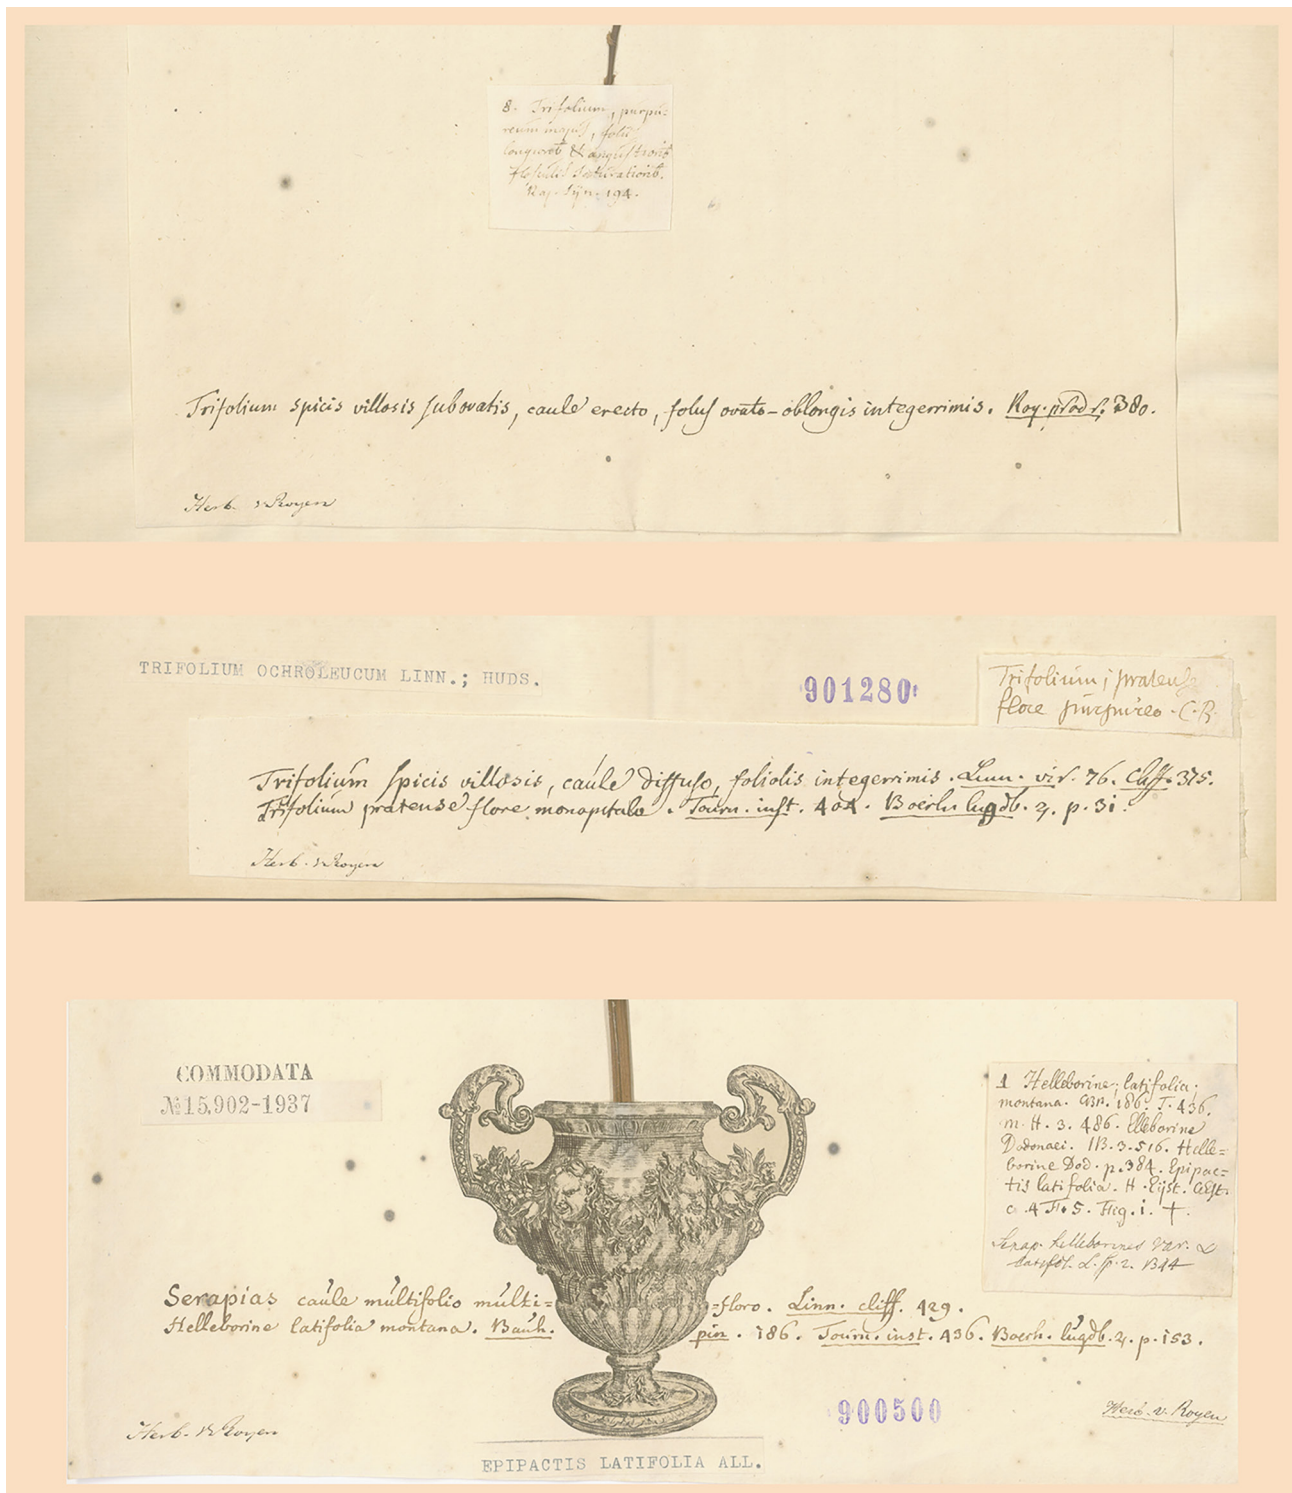 8. Trifolium, purpu=
reum majus, foliis
longiorib. & angustiorib.
flosculis saturatiorib.
Raj. Syn. 194.
Trifolium spicis villosis subovatis, caule erecto, foliis ovato-oblongis integerrimis. Roy. prodr. 380.
Herb. v Royen
TRIFOLIUM OCHROLEUCUM LINN.; HUDS.
901280
Trifolium; pratense
flore purpureo. C.B.
Trifolium spicis villosis, caule diffuso, foliolis integerrimis. Linn. vir. 76. Cliff. 375.
Trifolium pratense flore monopetalo. Tourn. inst. 404. Boerh. lugdb. 2. p. 31.
Herb. v Royen
COMMODATA
№ 15,902-1937
1 Helleborine; latifolia;
montana. CBP. 186. T. 436.
m. H. 3. 486. Elleborine
Dodonaei. IB. 3. 516. Helle=
borine Dod. p. 384. Epipac=
tis latifolia. H. Eyst. Aest.
O. 4 F. 5. Fig. 1. +.
Serap. helleborines var. α
latifol. L. sp. 2. 1344
Serapias caule multifolio multi= =floro. Linn. cliff. 429.
Helleborine latifolia montana. Bauh. pin. 186. Tourn. inst. 436. Boerh. lugdb. 2. p. 153.
900500
Herb. v. Royen
Herb. v Royen
EPIPACTIS LATIFOLIA ALL.